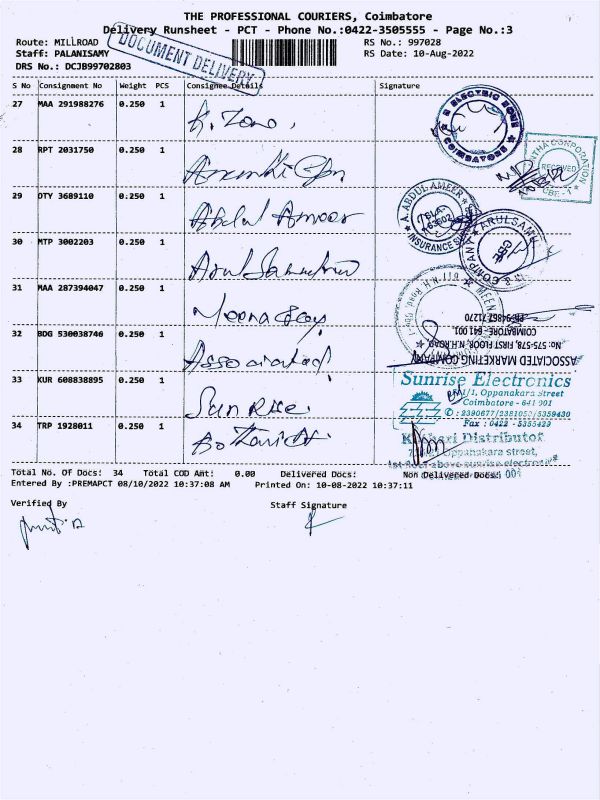 THE PROFESSIONAL COURIERS, Coimbatore
Delivery Runsheet - PCT - Phone No.:0422-3505555 - Page No.:3
Route: MILLROAD
RS No.: 997028
Staff: PALANISAMY
RS Date: 10-Aug-2022
DRS No.: DCJB99702803
DOCUMENT DELIVERY
S No Consignment No Weight PCS Consignee Details Signature
27 MAA 291988276 0.250 1
28 RPT 2031750 0.250 1
29 DTY 3689110 0.250 1 Abdul Ameer
30 MTP 3002203 0.250 1
31 MAA 287394047 0.250 1
32 BDG 530038746 0.250 1 Associated
33 KUR 608838895 0.250 1 Sun Rise
34 TRP 1928011 0.250 1
ELECTRIC ZONE
COIMBATORE
CORPORATION
RECEIVED
CBE - 1
A. ABDUL AMEER
INSURANCE
ARULSAMY
COMPANY
ASSOCIATED MARKETING COMPANY
No: 575-578, FIRST FLOOR, N.H.ROAD,
COIMBATORE - 641 001.
PH: 94867 71270
Sunrise Electronics
Oppanakara Street
Coimbatore - 641 001
: 2390677/2381052/5359430
Fax : 0422 - 5355429
Distributor
Oppanakara street,
1st floor above sunrise electronics
001
Total No. Of Docs: 34 Total COD Amt: 0.00 Delivered Docs: Non Delivered Docs:
Entered By :PREMAPCT 08/10/2022 10:37:08 AM Printed On: 10-08-2022 10:37:11
Verified By
Staff Signature